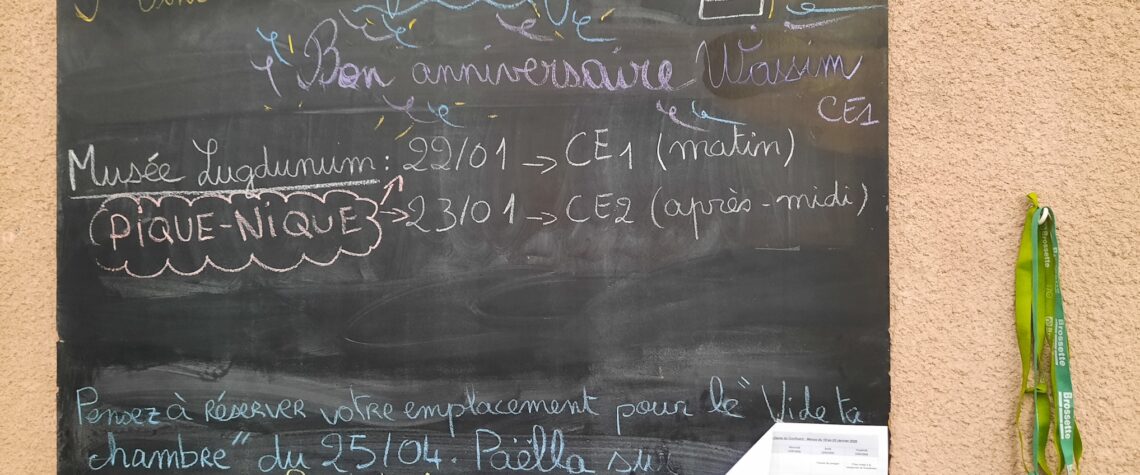 Bon anniversaire Wassim
CE1
Musée Lugdunum : 22/01 → CE1 (matin)
PIQUE-NIQUE → 23/01 → CE2 (après-midi)
Pensez à RÉSERVER votre emplacement pour le "Vide ta
chambre" du 25/04. Paëlla sur
Brossette
Brossette
Brossette